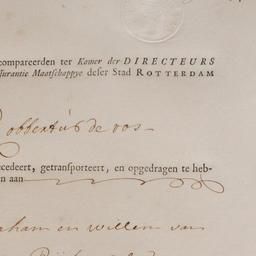 compareerden ter Kamer der DIRECTEURS
ssurantie Maatschappye deser Stad ROTTERDAM
obbertus de vos
cedeert, getransporteert, en opgedragen te heb-
en aan
raham en willem van